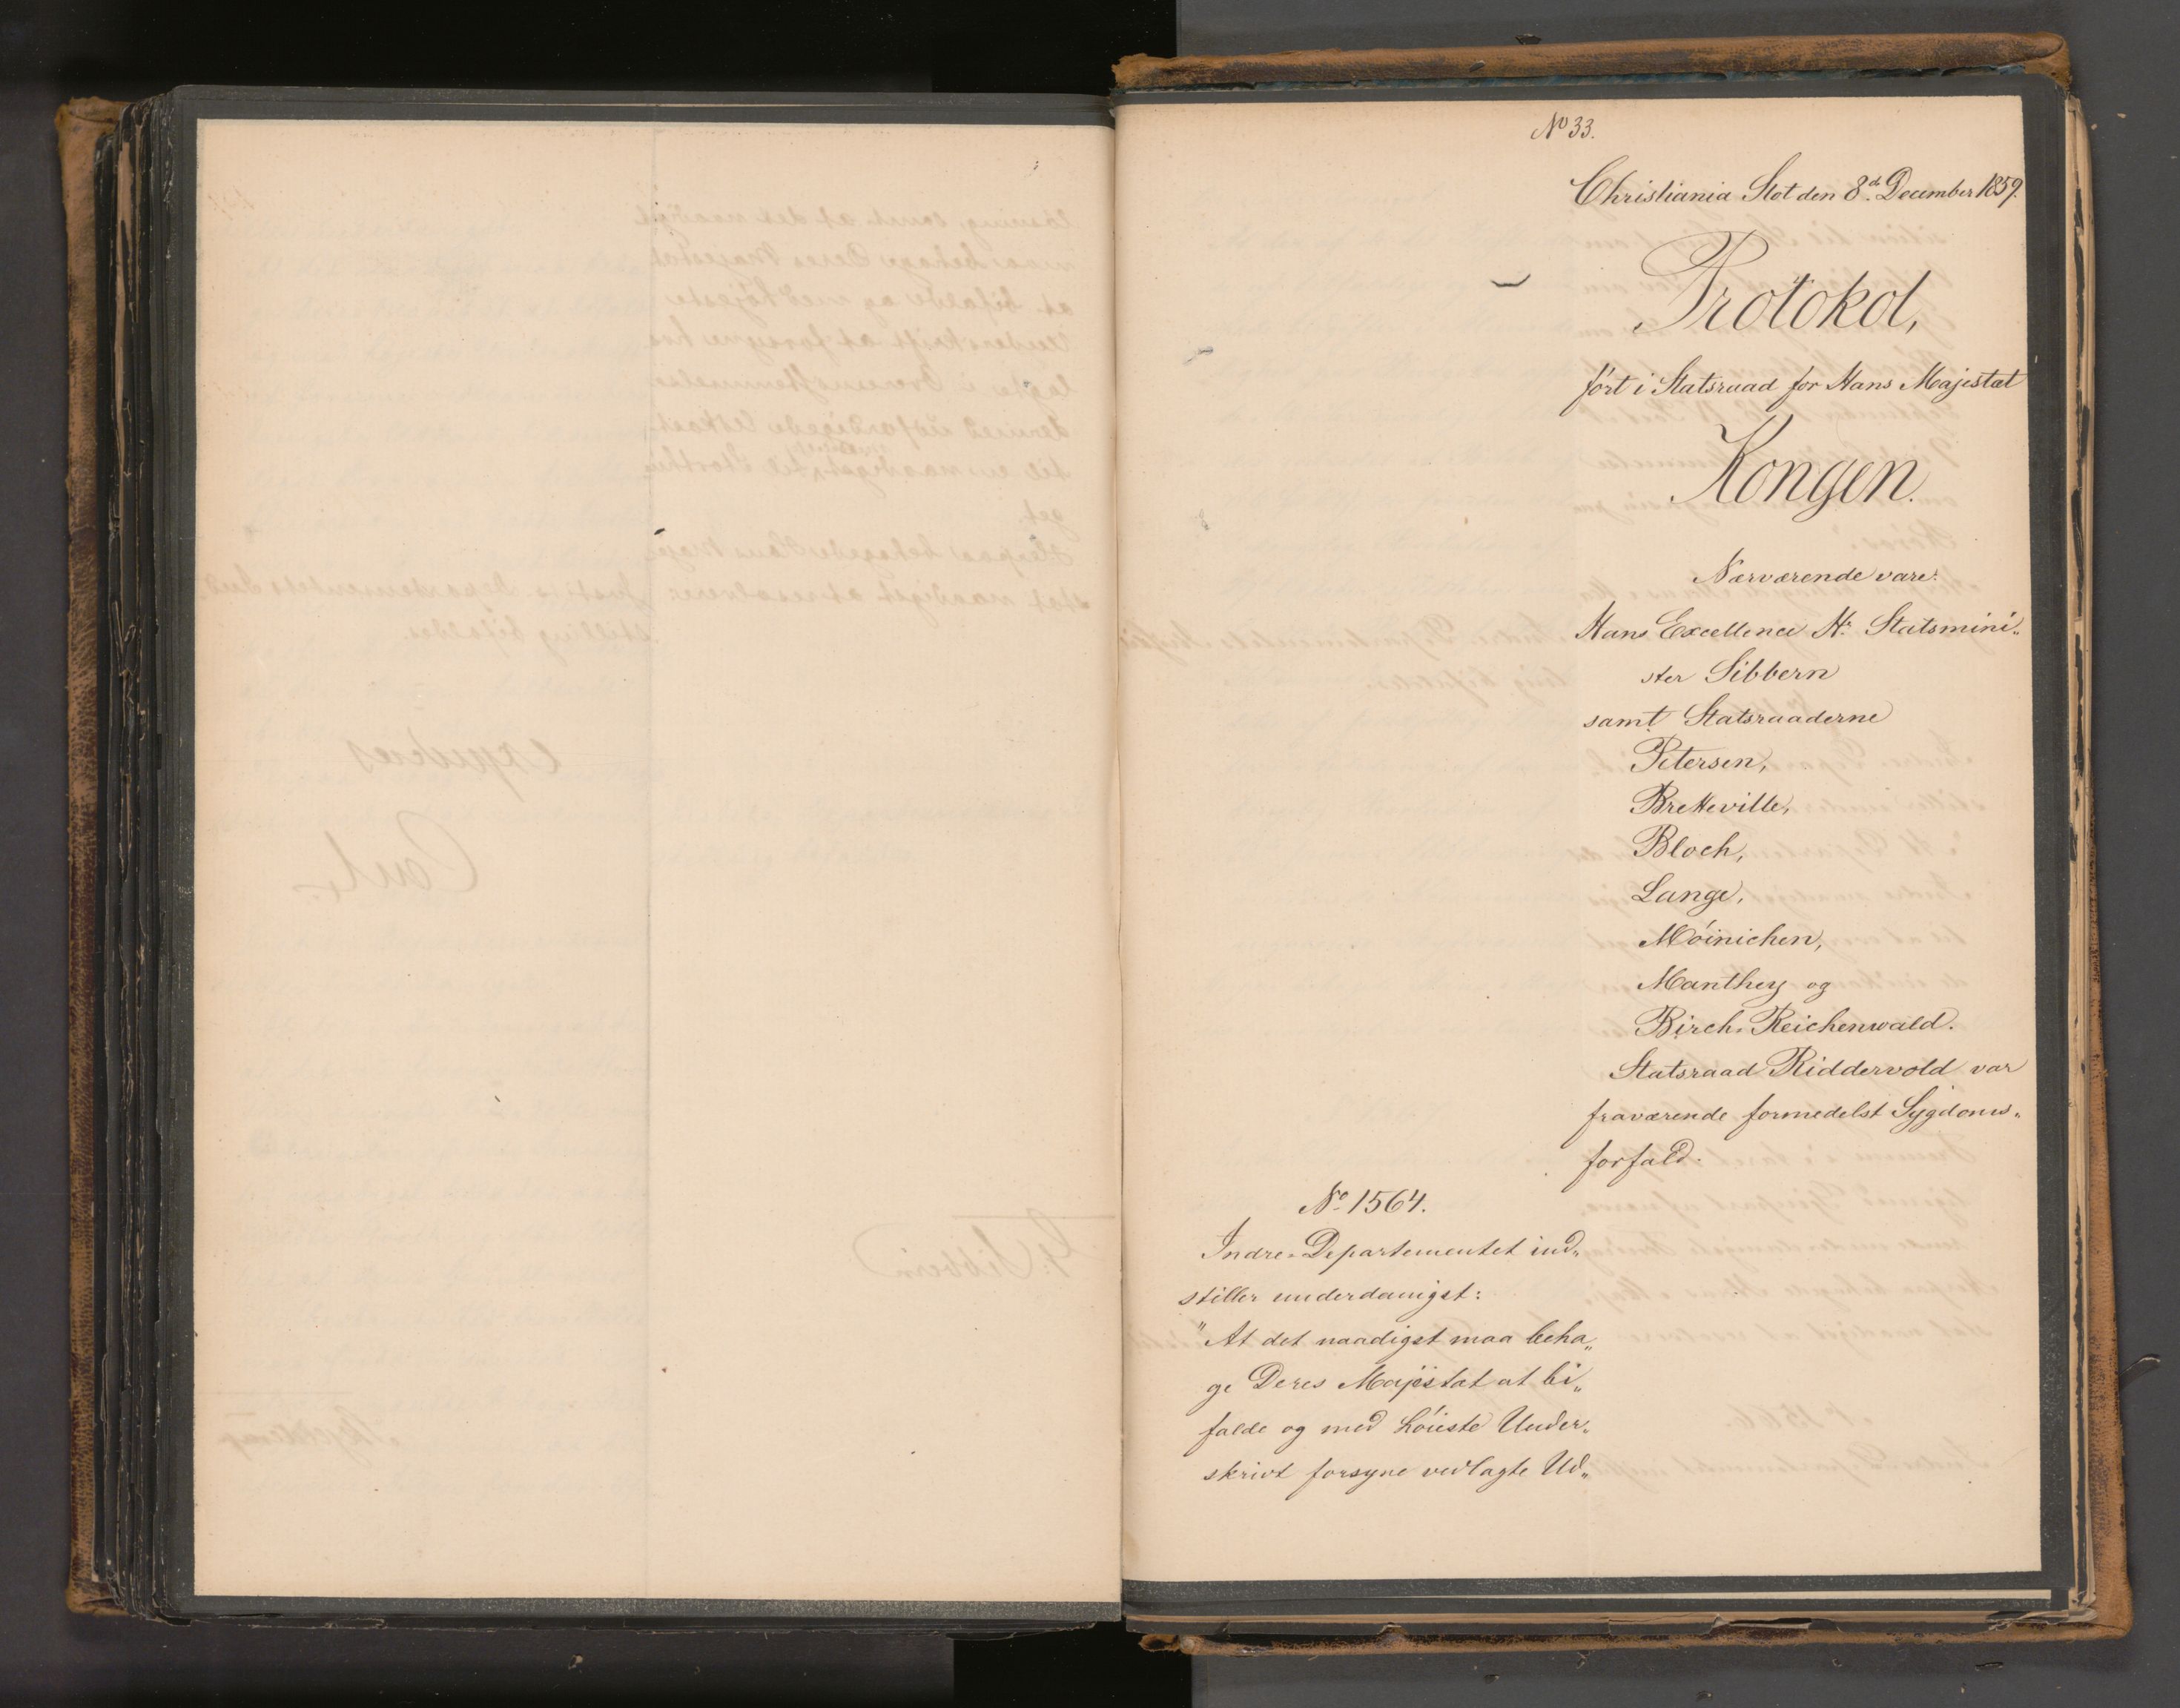 No 33.
Christiania Slot den 8de December 1859.
Protokol,
ført i Statsraad for Hans Majestæt
Kongen.
Nærværende vare:
Hans Excellence Hr. Statsmini„
ster Sibbern
samt Statsraaderne
Petersen,
Bretteville,
Bloch,
Lange,
Möinichen,
Manthey og
Birch-Reichenwald.
Statsraad Riddervold var
fraværende formedelst Sygdoms„
forfald.
No 1564.
Indre-Departementet ind„
stiller underdanigst:
"At det naadigst maa beha„
ge Deres Majestæt at bi„
falde og med höieste Under„
skrivt forsyne vedlagte Ud„